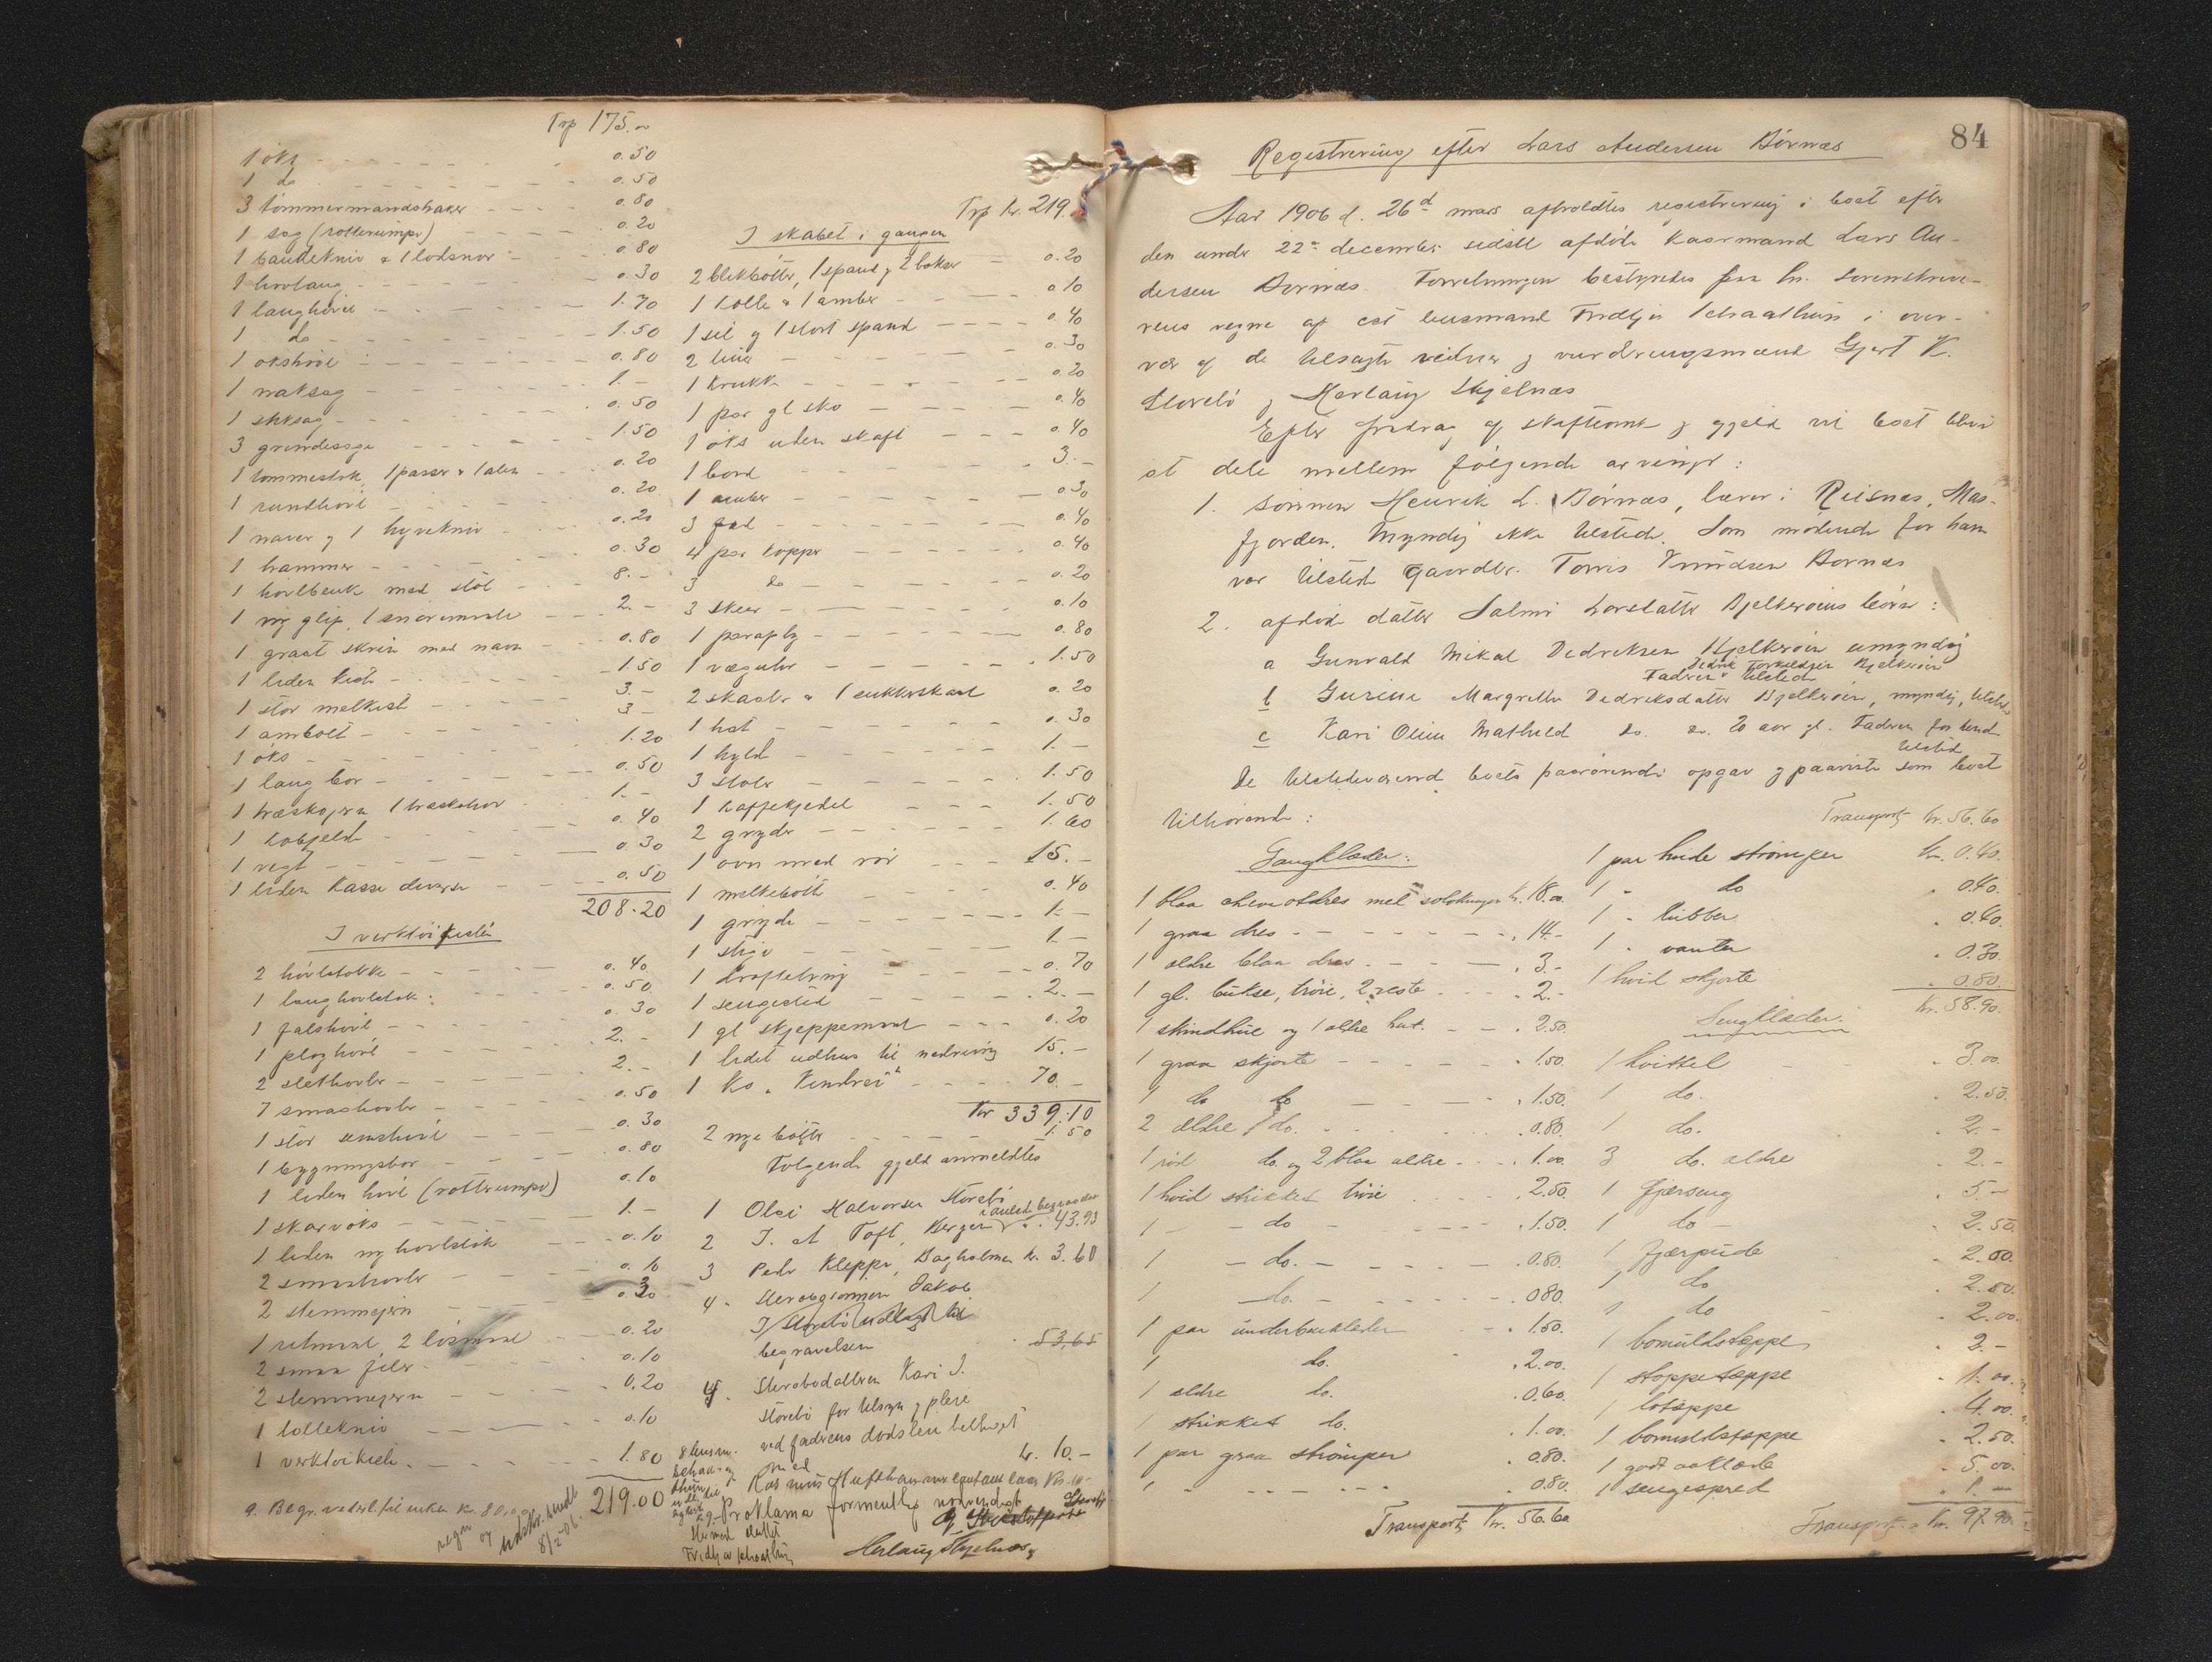 Trp 175.-
1 öks - - - 0.50
1 do - - - 0.50
3 tömmermandshaker - - - 0.80
1 sag (rotterumpe) - - - 0.20
1 baandekniv & 1 lodsnor - 0.80
- - - 0.30
1 langhövl - - - 1.70
1 do - - - 1.50
1 okshövl - - - 0.80
1 naksag - - - 1.-
1 stiksag - - - 0.50
3 grindesage - - - 1.50
1 tommestok, 1 passer & 1 alen - 0.20
1 rundhövl - - - 0.20
1 naver og 1 hyvekniv - - 0.20
1 hammer - - - 0.30
1 hövlbenk med stol - - 8.-
1 ny glip, 1 - - 2.-
1 graat skrin med navn - - 0.80
1 liden kiste - - - 1.50
1 stor melkiste - - - 3.-
1 ambolt - - - 3.-
1 öks - - - 1.20
1 lang bor - - - 0.50
1 træskojern 1 træskobor - 1.-
1 kobjelde - - - 0.40
1 vegt - - - 0.30
1 liden kasse diverse - - 0.50
208.20
I verktöikisten
2 hövlstokke - - - 0.40
1 langhovlstok - - - 0.50
1 falshövl - - - 0.30
1 ploghövl - - - 2.-
2 slethovler - - - 2.-
7 smaahovler - - - 0.50
1 stor simshövl - - - 0.30
1 bygningsbor - - - 0.80
1 liden hövl (rotterumpe) 0.10
1 skarvöks - - - 1.-
1 liden ny hovlstok - - 0.10
2 smaahovler - - - 0.10
2 stemmejern - - - 0.30
1 retmaal, 2 - - 0.20
2 smaa filer - - - 0.10
2 stemmejern - - - 0.20
1 tollekniv - - - 0.10
1 verktöikiste - - - 1.80
219.00
9. Begr. vederl. til enken kr. 80,00
8/5-06.
Trp kr. 219.-
I skabet i gangen
2 blikbötter, 1 spand og 2 bokser - 0.20
1 kolle & 1 amber - - 0.10
1 sil og 1 stort spand - - 0.40
2 liner - - - 0.30
1 krukke - - - 0.20
1 par gl sko - - - 0.40
1 öks uden skaft - - 0.40
1 bord - - - 3.-
1 amber - - - 0.30
3 fad - - - 0.40
4 par kopper - - - 0.40
3 do - - - 0.20
3 skeer - - - 0.10
1 paraply - - - 0.80
1 væguhr - - - 1.50
2 skaaler & 1 sukkerskaal 0.20
1 hat - - - 0.30
1 hylde - - - 1.-
3 stoler - - - 1.50
1 kaffekjedel - - - 1.50
2 gryder - - - 1.60
1 ovn med rör - - - 15.-
1 melkebötte - - - 0.40
1 gryde - - - 1.-
1 stige - - - 1.-
1 - - - 0.70
1 sengested - - - 2.-
1 gl skjeppemaal - - - 0.20
1 lidet udhus til nedrivning 15.-
1 ko "Kindrei" - - - 70.-
Kr 339.10
2 nye bötter - - - 1.50
Følgende gjeld anmeldtes
1 Olai Halvorsen Storebö
2 J. A Toft, Bergen 43.93
3 Peder Kleppe, Bagholmen kr. 3.60
4. Jakob
J Storebö udlagt til
begravelsen 53,65
4. Sterbodatteren Kari J.
Storebö for tilsyn og pleie
ved faderens dödsleie betinget
kr. 10.-
Proklama formentlig nödvendigt
Herlaug Skjelnæs
84
Registrering efter Lars Andersen Börnæs
Aar 1906 d. 26d mars afholdtes registrering i boet efter
den under 22de december sidstl afdöde kaarmand Lars An-
dersen Börnæs. Forretningen bestyredes paa hr. Sorenskrive-
rens vegne af cst lensmand Fridtjof Schaathun i over-
vær af de tilsagte vidner og vurderingsmænd Gjert K.
Storebö og Herlaug Skjelnæs
Efter fradrag af skifteomk og gjeld vil boet blive
at dele mellem følgende arvinger:
1. sönnen Henrik L. Börnæs, lærer i Risnæs, Mas-
fjorden. Myndig ikke tilstede. Som mödende for ham
var tilstede gaardbr. Torris Knudsen Börnæs
2. afdöde datter Salmi Larsdatter Bjelkeröens börn:
a Gunvald Mikal Dedreksen Bjelkeröen umyndig
Faderen Dedrik Torkildsen Bjelkeröen tilstede
b Gurine Margrethe Dedreksdatter Bjelkeröen, myndig, tilstede
c Kari Oline Mathild do. do. 20 aar gl. Faderen for hende
tilstede
De tilstedeværende boets paarörende opgav og paaviste som boet
tilhörende:
Gangklæder:
1 blaa cheviotdres med kr. 18.00.
1 graa dres - - - 14.-
1 ældre blaa dres - - 3.-
1 gl. bukse, tröie, 2 veste - - 2.-
1 skindhue og 1 ældre hat - - 2.50.
1 graa skjorte - - - 1.50.
1 do do - - - 1.50.
2 ældre do. - - - 0.80.
1 röd do. og 2 blaa ældre - - 1.00.
1 hvid strikket tröie - - 2.50.
1 - do - - - 1.50.
1 - do. - - - 0.80.
1 - do. - - - 0.80.
1 par underbenklæder - - 1.50.
1 do. 2.00.
1 ældre do. 0.60.
1 strikket do. 1.00.
1 par graa strömper 0.80.
1 - - - 0.80.
Transport kr. 56.60
Transport kr. 56.60
1 par hvide strömper kr. 0.40.
1 - do 0.40.
1 - lubber 0.40.
1 - vanter 0.30.
1 hvid skjorte 0.80.
kr. 58.90.
Sengklæder:
1 hvittel 3.00.
1 do. 2.50.
1 do. 2.-
3 do. ældre 2.-
1 fjærseng 5.-
1 do - 2.50.
1 fjærpude 2.00.
1 do 2.50.
1 do 2.00.
1 bomuldstæppe 2.-
1 stoppetæppe 1.00.
1 lotæppe 4.00.
1 bomuldstæppe 2.50.
1 godt aaklæde 5.00.
1 sengespred 1.-
Transport kr. 97.90.